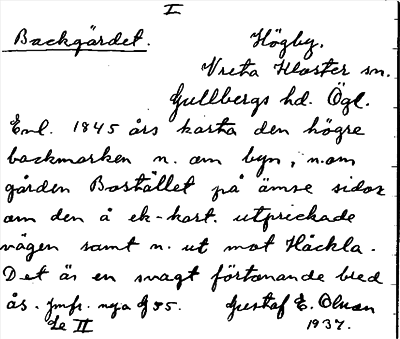 I
Backgärdet.
Högby.
Vreta Kloster sn.
Gullbergs hd. Ögl.
Enl. 1845 års karta den högre
backmarken n. om byn, n.om
gården Bostället på ömse sidor
om den å ek-kart. utprickade
vägen samt n. ut mot Håckla.
Det är en svagt förtonande bred
ås. Jmfr. nya G 55.
Se II
Gustaf E. Olson
1937.